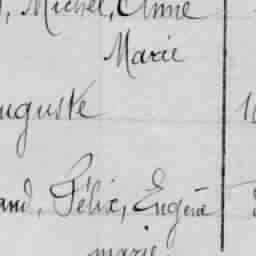 , Michel, Anne
Marie
uguste
and, Félix, Eugène
marie